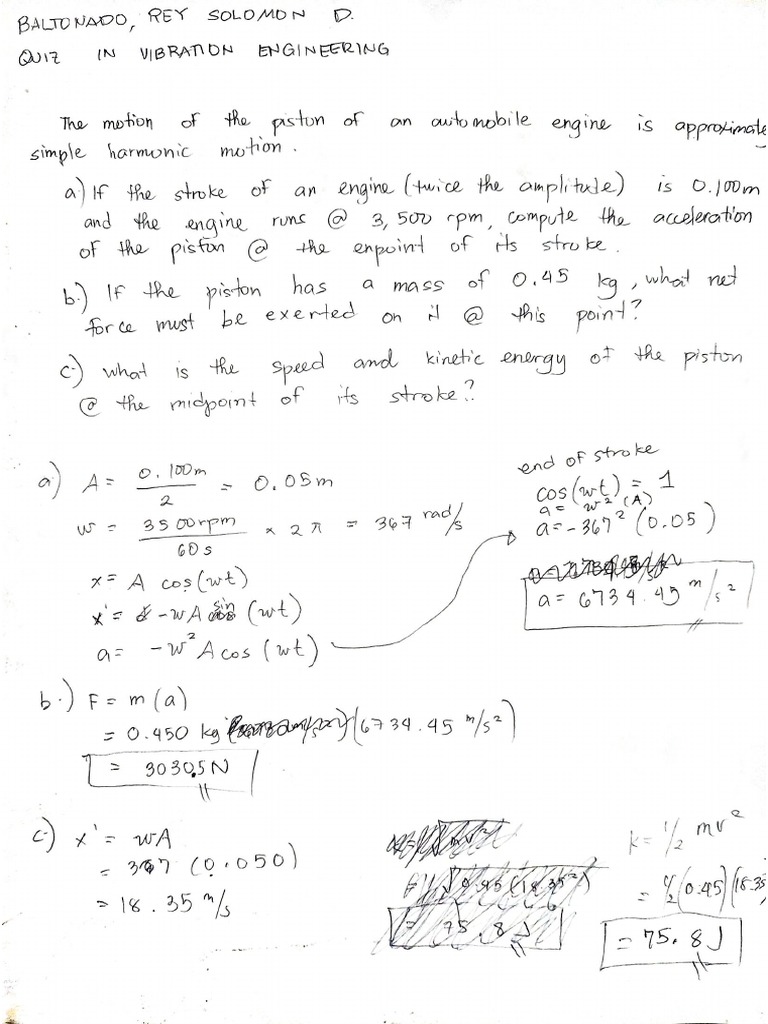 BALTONADO, REY SOLOMON D.
QUIZ IN VIBRATION ENGINEERING
The motion of the piston of an automobile engine is approximate
simple harmonic motion.
a.) If the stroke of an engine (twice the amplitude) is 0.100m
and the engine runs @ 3,500 rpm, compute the acceleration
of the piston @ the enpoint of its stroke.
b.) If the piston has a mass of 0.45 kg, what net
force must be exerted on it @ this point?
c.) what is the speed and kinetic energy of the piston
@ the midpoint of its stroke?
a.) A = 0.100m / 2 = 0.05m
w = 3500rpm / 60s × 2π = 367 rad/s
x = A cos(wt)
x' = -wA sin (wt)
a = -w² A cos (wt)
end of stroke
cos(wt) = 1
a = w² (A)
a = -367² (0.05)
a = 6734.45 m/s²
b.) F = m(a)
= 0.450 kg (6734.45 m/s²)
= 3030.5N
c.) x' = wA
= 367 (0.050)
= 18.35 m/s
k = 1/2 mv²
= 1/2 (0.45)(18.35
= 75.8 J